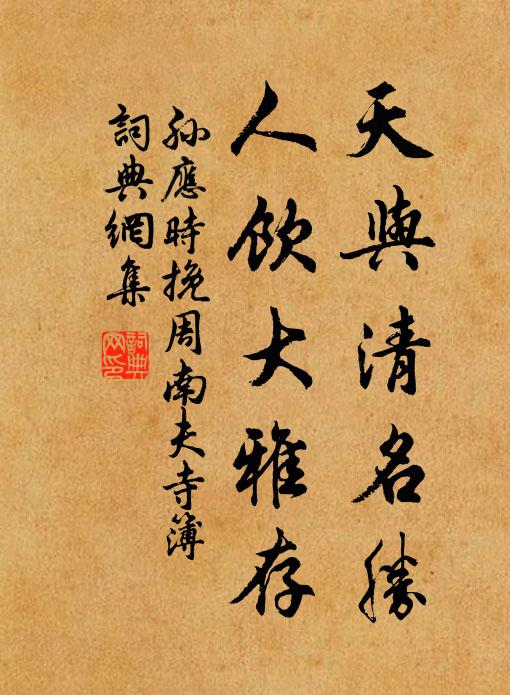 天與清名勝
人飲大雅存
孫應時挽周南夫寺簿
詞典網集
詞典網印